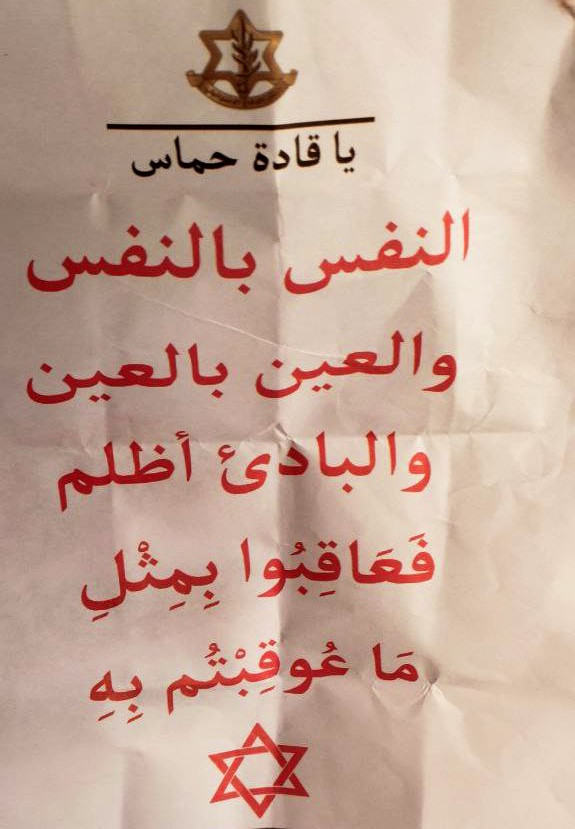 يا قادة حماس
النفس بالنفس
والعين بالعين
والبادئ أظلم
فَعَاقِبُوا بِمِثْلِ
مَا عُوقِبْتُم بِهِ